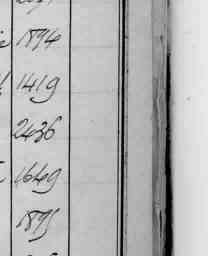 1894
1419
2436
1649
1895